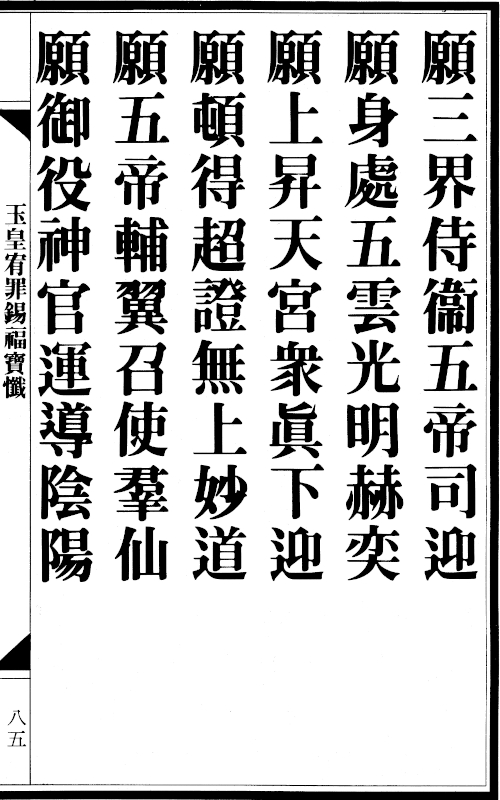 願三界侍衞五帝司迎
願身處五雲光明赫奕
願上昇天宮衆眞下迎
願頓得超證無上妙道
願五帝輔翼召使羣仙
願御役神官運導陰陽
玉皇宥罪錫福寶懺
八五